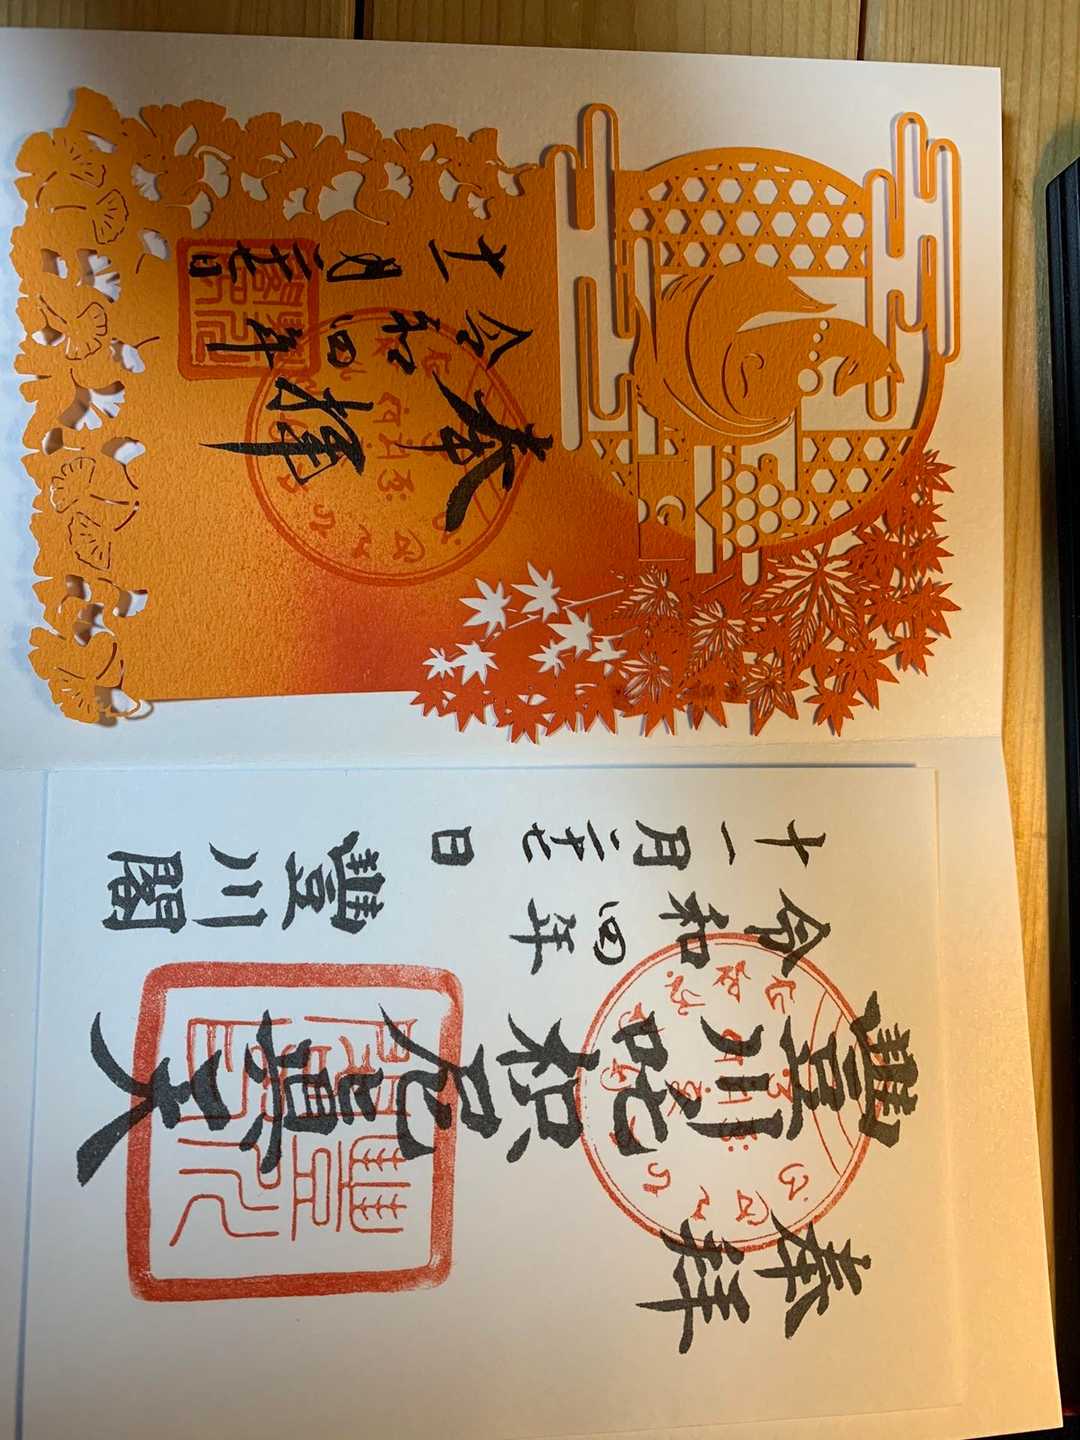 奉拝
豐川吒枳尼眞天
令和四年
十一月二十七日
豐川閣
奉拝
令和四年
十一月二十七日